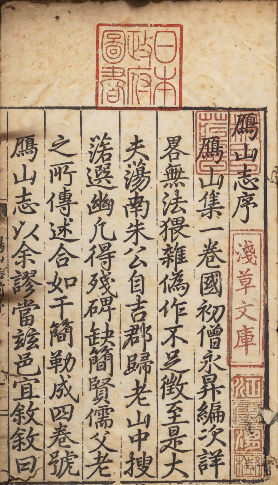 日本
政府
圖書
鴈山志序
淺草文庫
鴈山集一卷國初僧永昇編次詳
畧無法猥雜偽作不足徵至是大
夫蕩南朱公自吉郡歸老山中搜
濳選幽凡得殘碑缺簡賢儒父老
之所傳述合如干簡勒成四卷號
鴈山志以余謬當兹邑宜敘敘曰